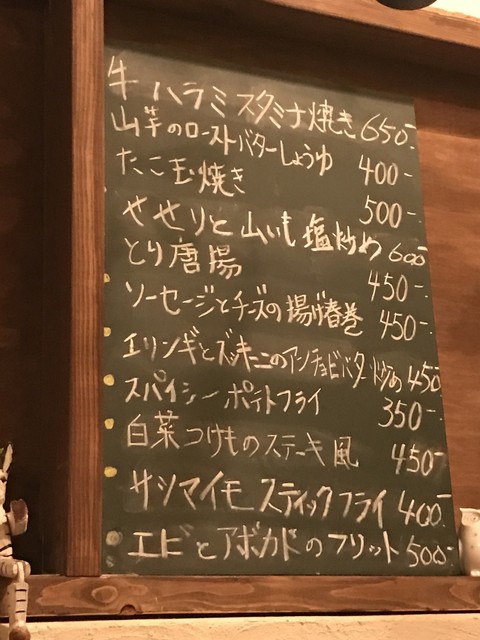 牛ハラミスタミナ焼き 650-
山芋のローストバターしょうゆ 400-
たこ玉焼き 500-
せせりと山いも塩炒め 600-
とり唐揚 450-
ソーセージとチーズの揚げ春巻 450-
エリンギとズッキーニのアンチョビバター炒め 450
スパイシーポテトフライ 350-
白菜つけものステーキ風 450-
サツマイモスティックフライ 400-
エビとアボカドのフリット 500-